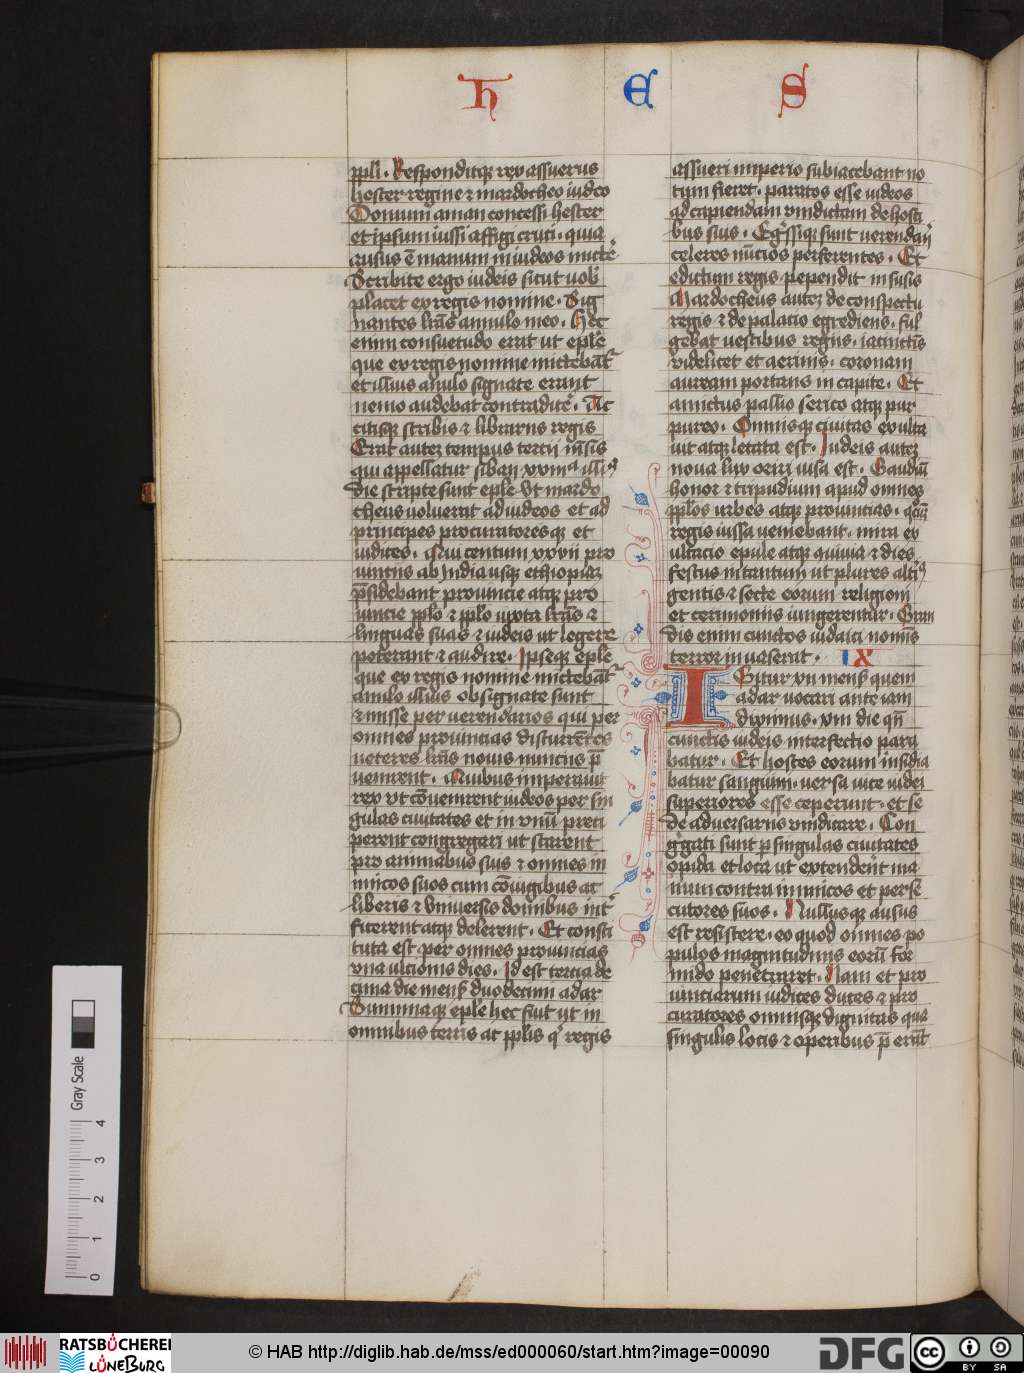 h E S
ppli . Responditqz rex assuerus
hester regine ⁊ mardocheo iudeo
Domum aman concessi hester
et ipsum iussi affigi cruci . quia
ausus ē manum in iudeos mittẽ
Scribite ergo iudeis sicut uobꝭ
placet ex regis nomine . Sig
nantes lrãs annulo meo . Hec
enim consuetudo erat ut eple
que ex regis nomine mittebãt᷑
et illius anulo signate erant
nemo audebat contradicẽ . Ac
citisqz scribis ⁊ librariis regis
Erat autez tempus tercii mẽsis
qui appellatur siban xxiiiᵃ illiꝰ
die scripte sunt eple vt mardo
cheus voluerat ad iudeos et ad
principes procuratoresqz et
iudices . Qui centum xxvii pro
uinciis ab India usqz ethiopiaz
p̄sidebant prouincie atqz pro
uincie pplo ⁊ pplo iuxta lrãs ⁊
linguas suas ⁊ iudeis ut legere
poterant ⁊ audire . Ipseqz eple
que ex regis nomine mittebãt᷑
anulo illius obsignate sunt
⁊ misse per ueredarios qui per
omnes prouincias discurrẽtes
ueteres lrãs nouis nunciis p̄
uenirent . Quibus imperauit
rex vt cõuenirent iudeos per sin
gulas ciuitates et in vnũ preci
perent congregari ut starent
pro animabus suis ⁊ omnes in
imicos suos cum cõiugibus ac
liberis ⁊ vniuersis domibus int᷑
ficerent atqz delerent . Et consti
tuta est per omnes prouincias
vna ulcionis dies . Id est tercia de
cima die mensꝭ duodecimi adar
Summaqz eple hec fuit ut in
omnibus terris ac pplis q̇ regis
assueri imperio subiacebant no
tum fieret . paratos esse iudeos
ad capiendam vindictam de hosti
bus suis . Egᵉssiqz sunt ueredarij
celeres nũcios perferentes . Et
edictum regis pependit in susis
Mardocheus autez de conspectu
regis ⁊ de palacio egrediens . ful
gebat uestibus regiis . iacinctĩs
videlicet et aeriis . coronam
auream portans in capite . Et
amictus pallio serico atqz pur
pureo . Omnisqz ciuitas exulta
uit atqz letata est . Iudeis autez
noua lux oriri uisa est . Gaudiũ
honor ⁊ tripudium apud omnes
pplos urbes atqz prouincias . qcũqz
regis iussa ueniebant . mira ex
ultacio epule atqz cõuiuia ⁊ dies
festus in tantum ut plures altiꝰ
gentis ⁊ secte eorum religioni
et cerimoniis iungerentur . Gran
dis enim cunctos iudaici nomĩs
terror inuaserat . IX
IGitur xii mensꝭ quem
adar vocari ante iam
diximus . xiii die qñ
cunctis iudeis interfectio para
batur . Et hostes eorum insidia
batur sanguini . uersa uice iudei
superiores esse ceperunt . et se
de aduersariis vindicare . Con
gᵉgati sunt ꝑ singulas ciuitates
opida et loca ut extenderẽt ma
num contra inimicos et perse
cutores suos . Nullusqz ausus
est resistere . eo quod omnes po
pulos magnitudinis eorũ for
mido penetraret . Nam et pro
uinciarum iudices duces ⁊ pro
curatores omnisqz dignitas que
singulis locis ⁊ operibus p̄ erãt
Gray Scale
0 1 2 3 4
RATSBÜCHEREI
LÜNEBURG
© HAB http://diglib.hab.de/mss/ed000060/start.htm?image=00090
DFG
cc BY SA